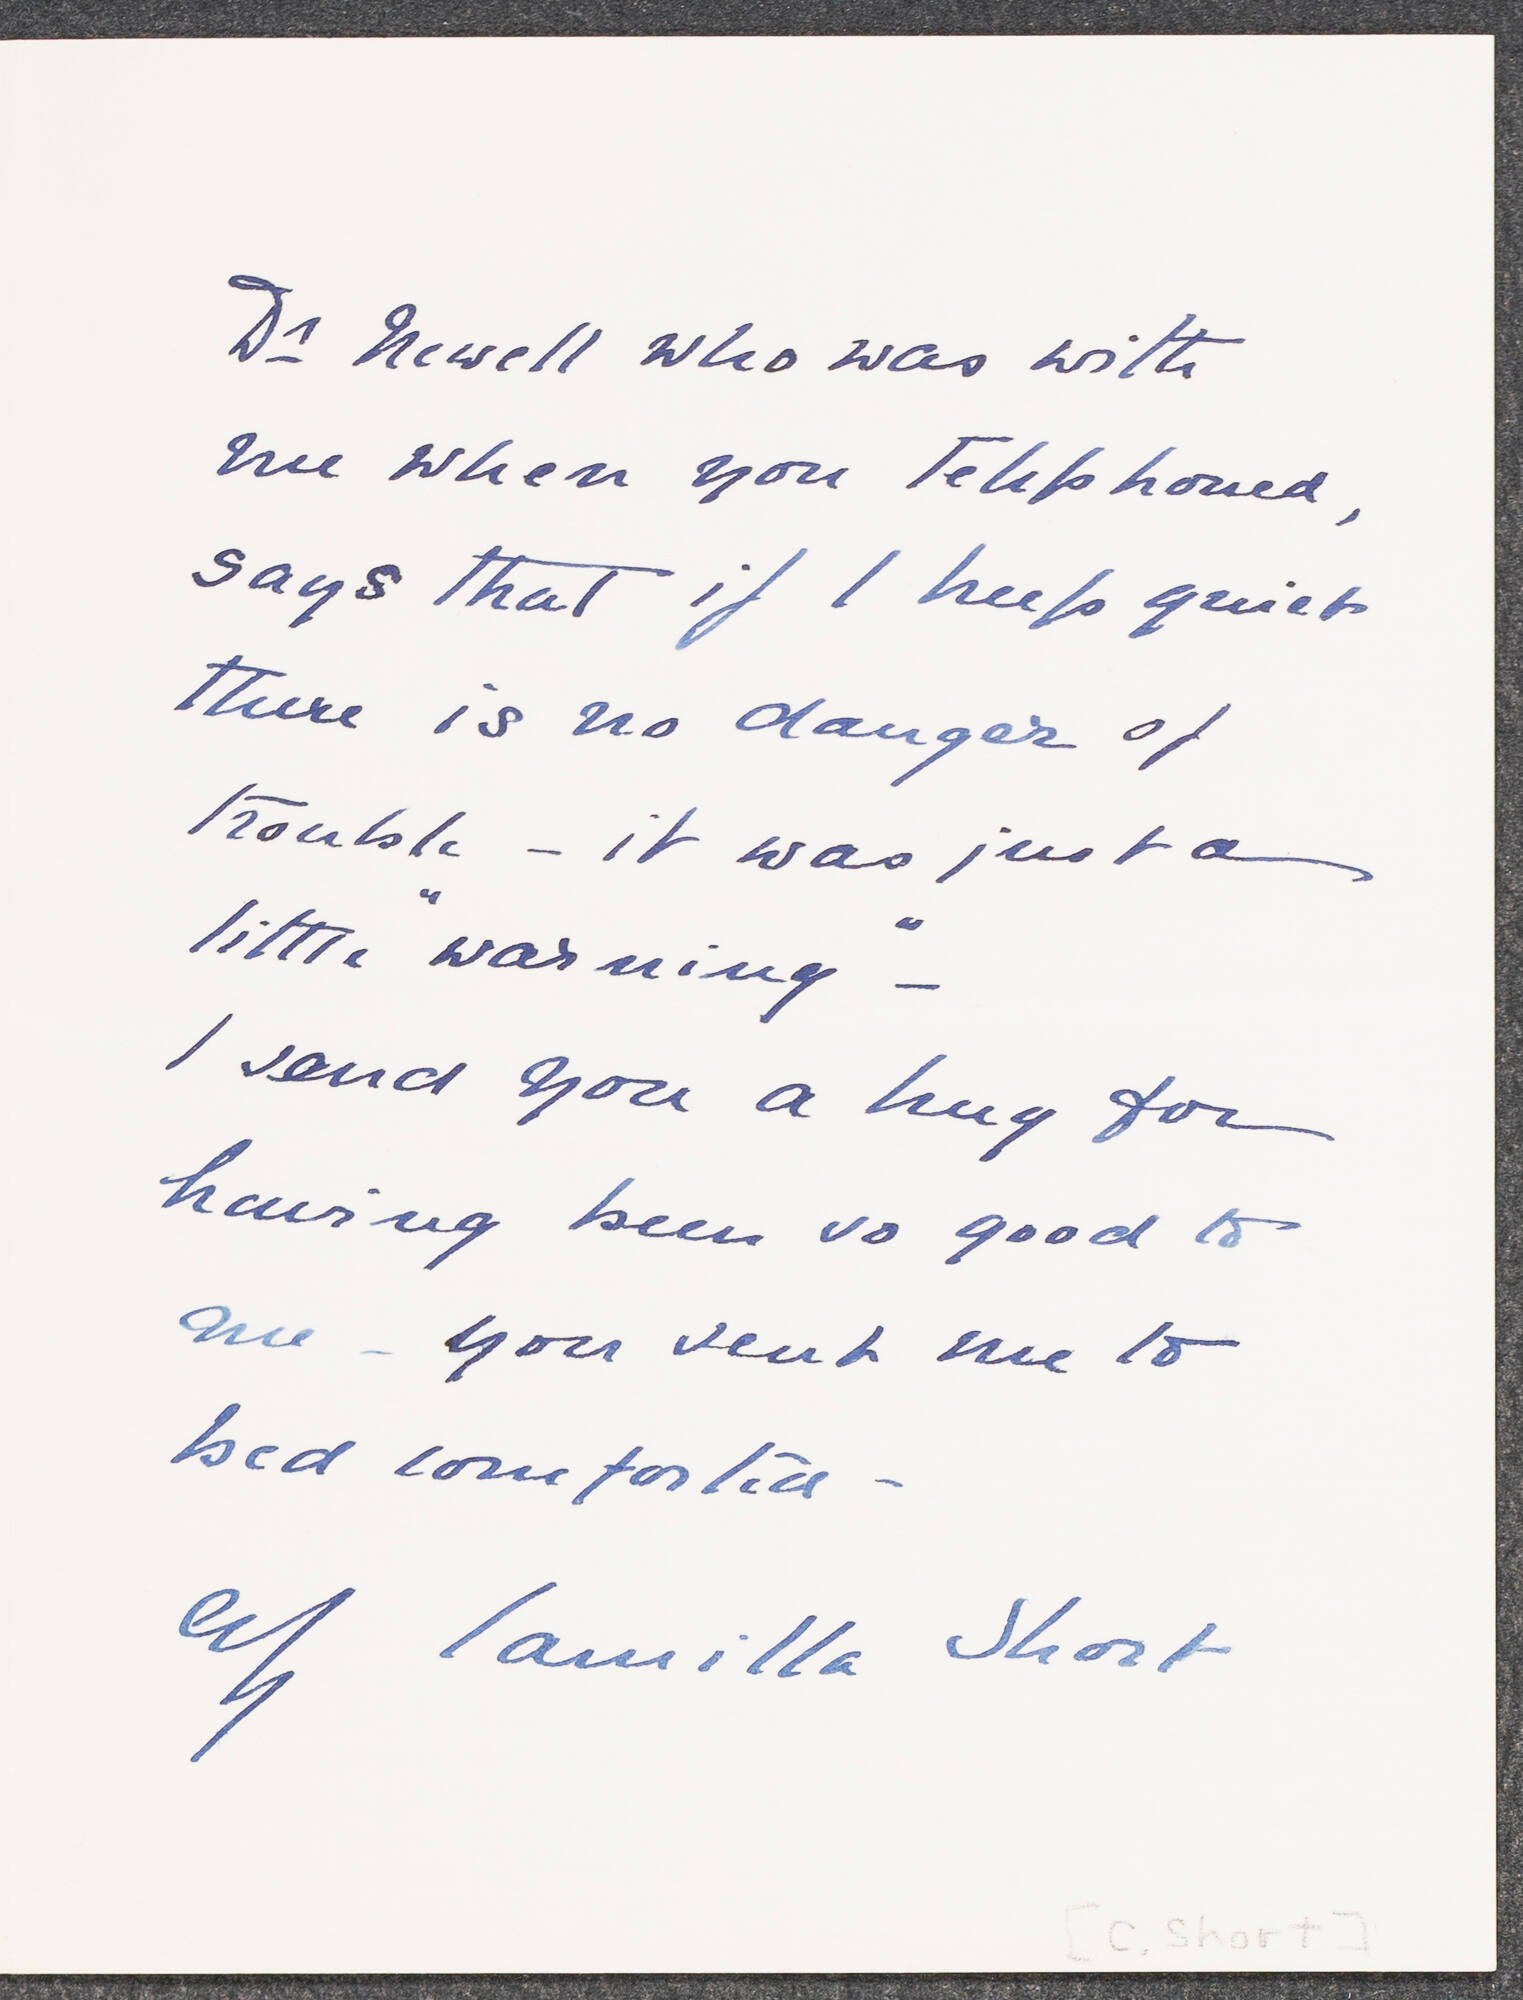 Dr Newell who was with
me when you Telephoned,
says that if I keep quiet
there is no danger of
trouble - it was just a
little "warning" -
I send you a hug for
having been so good to
me - you sent me to
bed comforted -
Camilla Short
[C. Short]